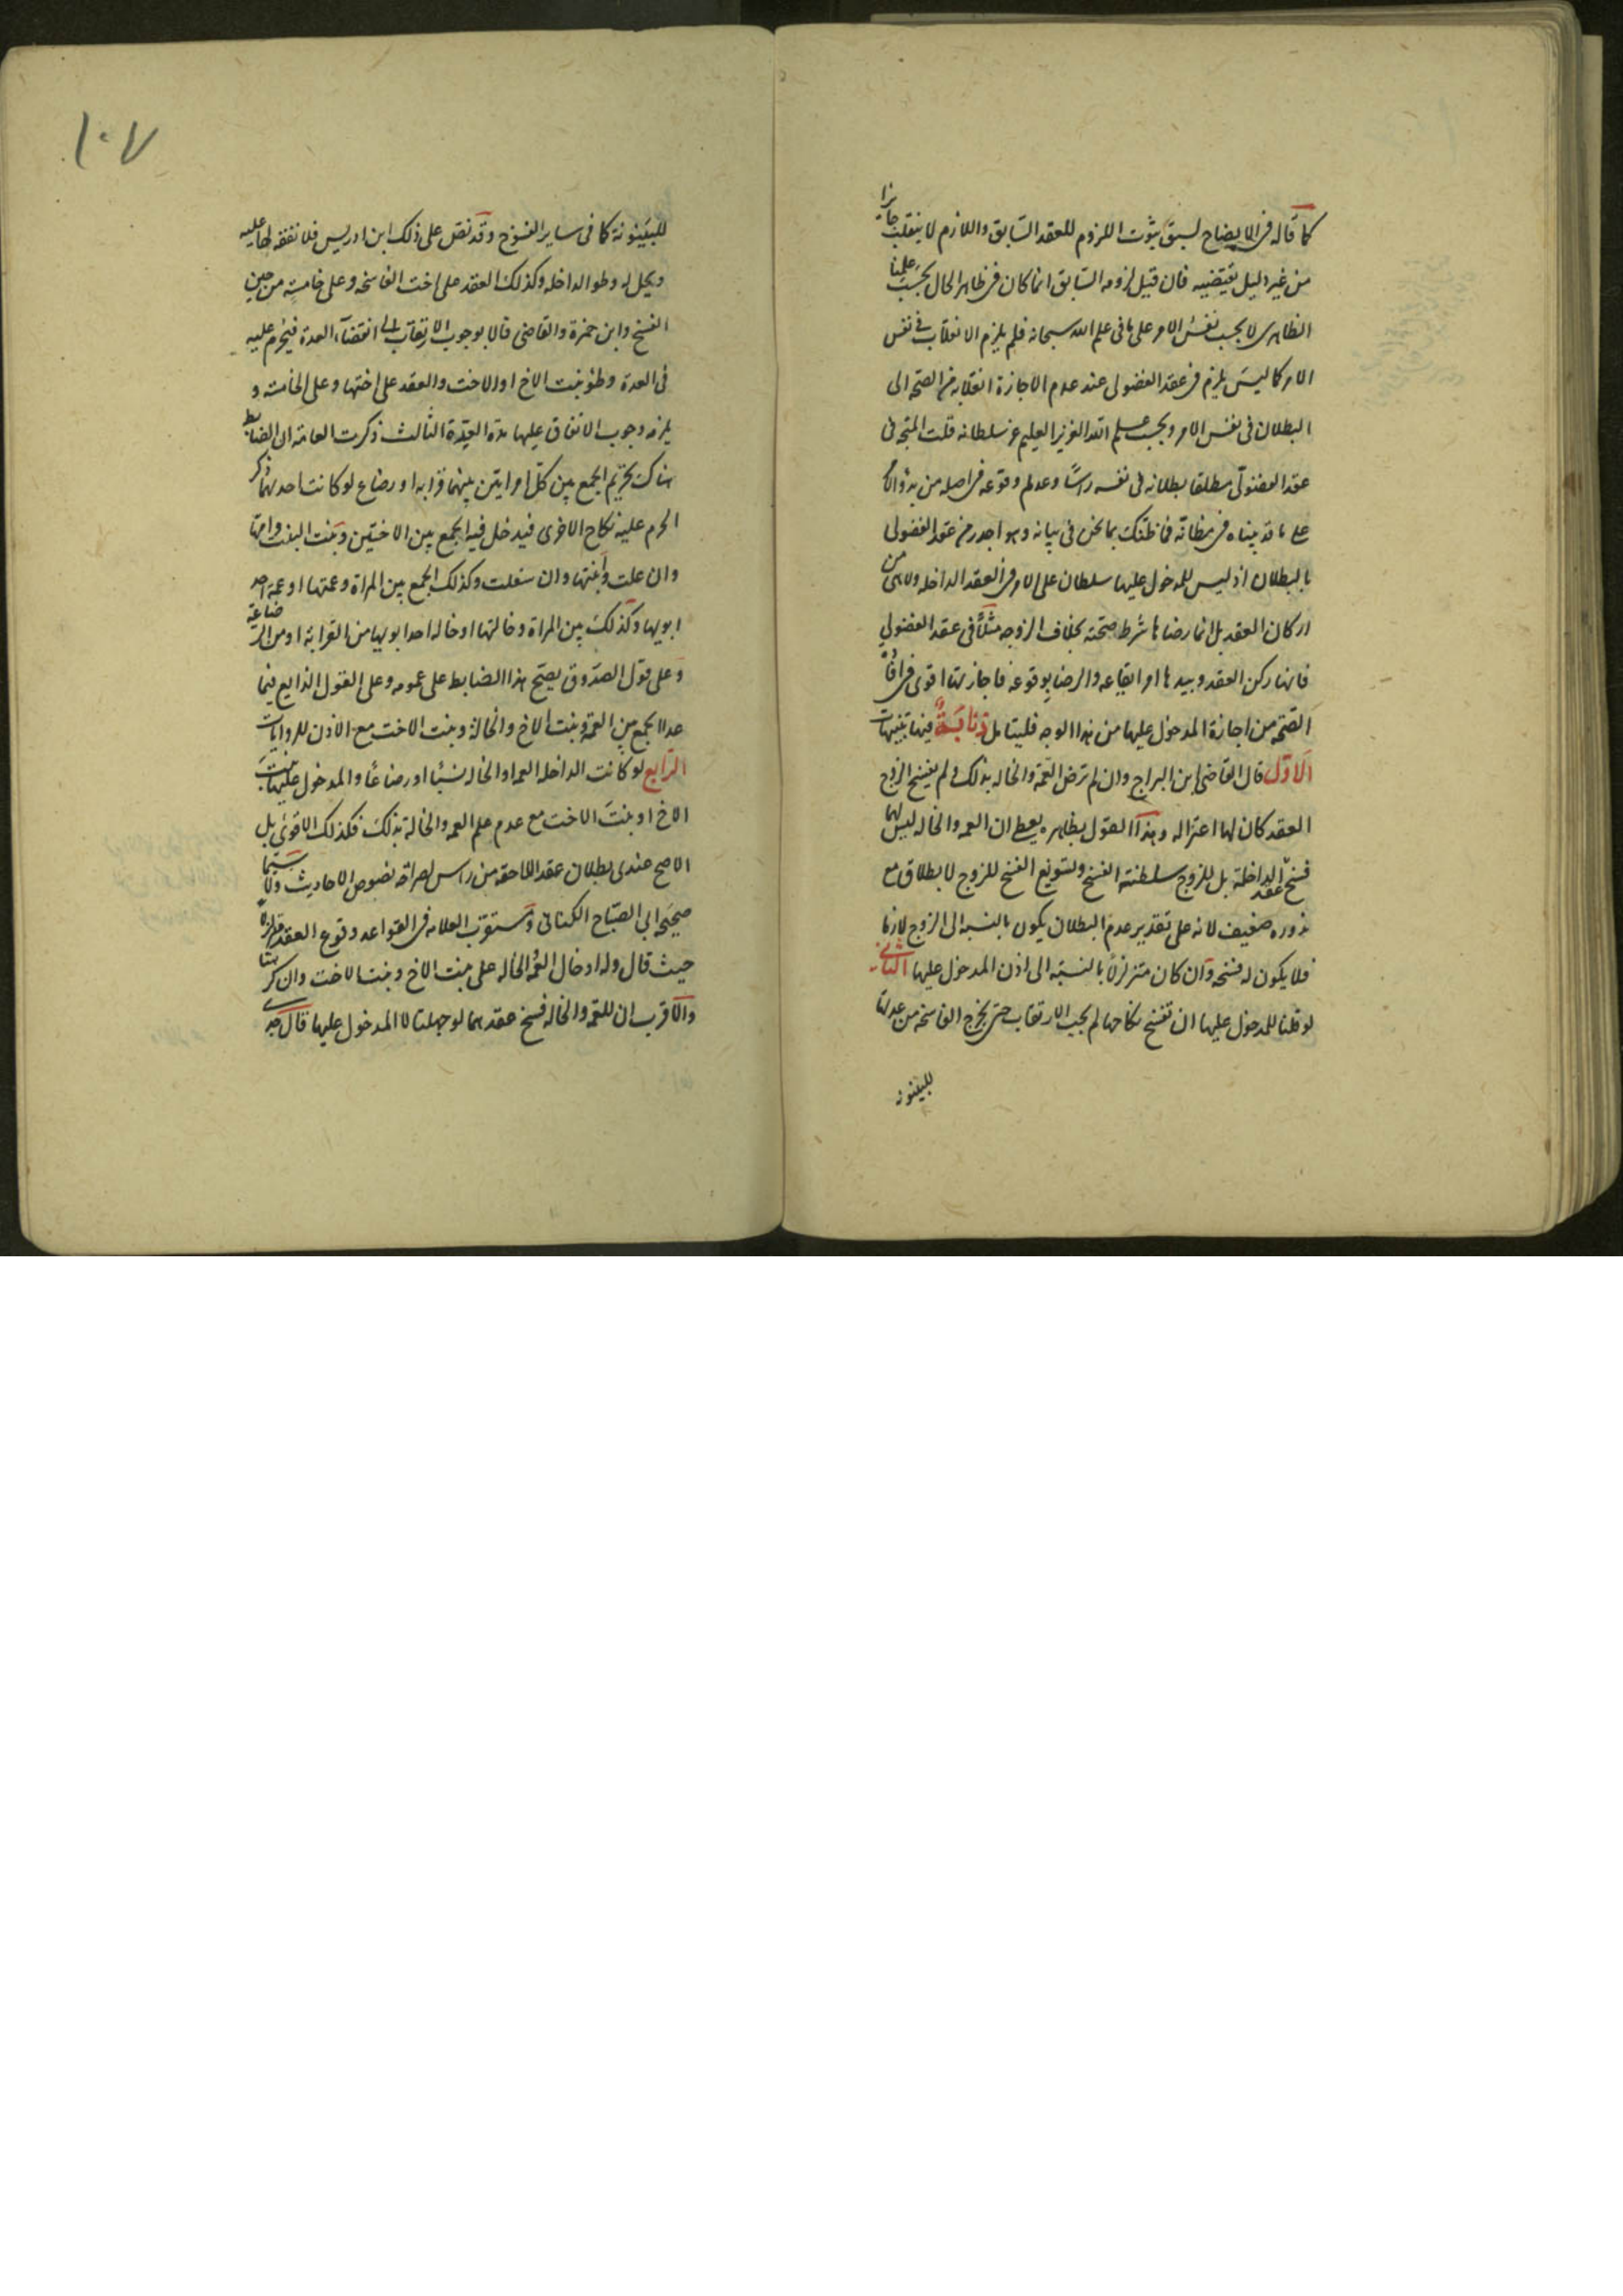 كما قاله في الايضاح لسبق ثبوت اللزوم للعقد السابق واللازم لا ينقلب جايزا
من غير دليل يقتضيه فان قيل لزومه السابق انما كان في ظاهر الحال بحسب علمنا
الظاهري لا بحسب نفس الامر على ما في علم الله سبحانه فلم يلزم الانقلاب في نفس
الامر كما ليس يلزم في عقد الفضولي عند عدم الاجازة انقلابه من الصحة الى
البطلان في نفس الامر وبحسب علم الله العزيز العليم عز سلطانه قلت المتجه في
عقد الفضولي مطلقا بطلانه في نفسه راسًا وعدم وقوعه في اصله من بدو الامر
على ما قد بيناه في مظانه فما ظنك بما نحن في بيانه وهو اجدر من عقد الفضولي
بالبطلان اذ ليس للمدخول عليها سلطان على الامر في العقد الداخله ولا هي من
اركان العقد بل انما رضاها شرط صحته بخلاف الزوجه مثلًا في عقد الفضولي
فانها ركن العقد وبيدها امر ايقاعه والرضا بوقوعه فاجازتها اقوى في افادة
الصحة من اجازة المدخول عليها من هذا الوجه فليتامل ذنابة فيها تنبيهات
الاول قال القاضي ابن البراج وان لم ترض العمة والخاله بذلك ولم يفسخ الزوج
العقد كان لها اعتزاله وهذا القول بظاهره يعطي ان العمه والخاله ليس لهما
فسخ عقد الداخلة بل للزوج سلطنة الفسخ وتسويغ الفسخ للزوج لا بطلاق مع
ندوره ضعيف لانه على تقدير عدم البطلان يكون بالنسبه الى الزوج لازما
فلا يكون له فسخه وان كان متزلزلًا بالنسبة الى اذن المدخول عليها الثاني
لو قلنا للمدخول عليها ان تفسخ نكاحها لم يجب الارتقاب حتى يخرج الفاسخة من عدتها
للبينونة
١٠٧
للبينونة كما في ساير الفسوخ وقد نص على ذلك ابن ادريس فلا نفقه لها عليه
ويحل له وطو الداخله وكذلك العقد على اخت الفاسخه وعلى خامسة من حين
الفسخ وابن حمزة والقاضي قالا بوجوب الارتقاب الى انقضاء العدة فيحرم عليه
في العدة وطؤ بنت الاخ او الاخت والعقد على اختها وعلى الخامسة و
يلزمه وجوب الانفاق عليها مدة العدة الثالث ذكرت العامة ان الضابط
هناك تحريم الجمع بين كل امراتين بينهما قرابه او رضاع لو كانت احدهما ذكر
الحرم عليه نكاح الاخرى فيدخل فيه الجمع بين الاختين وبنت البنت وامها
وان علت وابنتها وان سفلت وكذلك الجمع بين المراة وعمتها او عمة احد
ابويها وكذلك بين المراة وخالتها او خاله احد ابويها من القرابة او من الرضاعة
وعلى قول الصدوق يصح هذا الضابط على عمومه وعلى القول الذايع فيما
عدا الجمع بين العمة وبنت الاخ والخالة وبنت الاخت مع الاذن للروايات
الرابع لو كانت الداخله العمه او الخاله نسبًا او رضاعًا والمدخول عليها بنت
الاخ او بنت الاخت مع عدم علم العمه والخالة بذلك فكذلك الاقوى بل
الاصح عندي بطلان عقد اللاحقه من راس لصراحة نصوص الاحاديث ولا سيما
صحيحه ابي الصباح الكناني واستقرب العلامه في القواعد وقوع العقد متزلزلًا
حيث قال وله ادخال العمة والخاله على بنت الاخ وبنت الاخت وان كرهتا
والاقرب ان للعمة والخاله فسخ عقدهما لو جهلتا لا المدخول عليها قال جدي